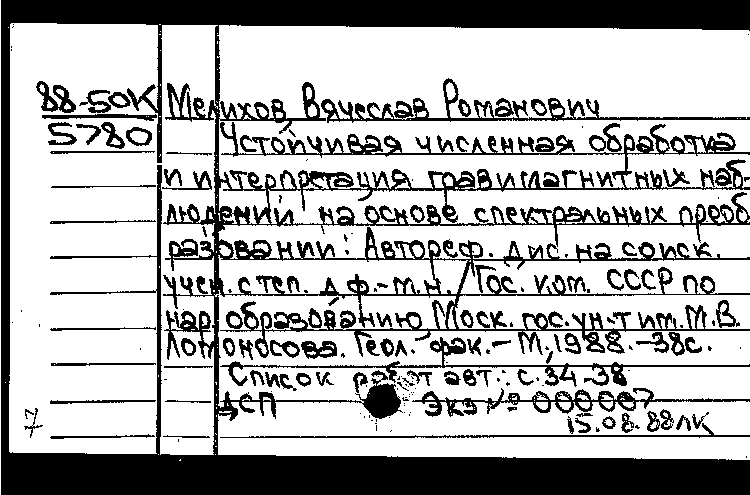 88-50К Мелихов, Вячеслав Романович
5780 Устойчивая численная обработка
и интерпретация гравимагнитных наб-
людений на основе спектральных преоб
разований: Автореф. дис. на соиск.
учен. степ. д.ф.-м.н. / Гос. ком. СССР по
нар. образованию Моск. гос. ун-т им. М.В.
Ломоносова. Геол. фак. - М, 1988. - 38с.
Список работ авт.: с. 34-38
ДСП Экз № 000007
15.08.88лк
7
7